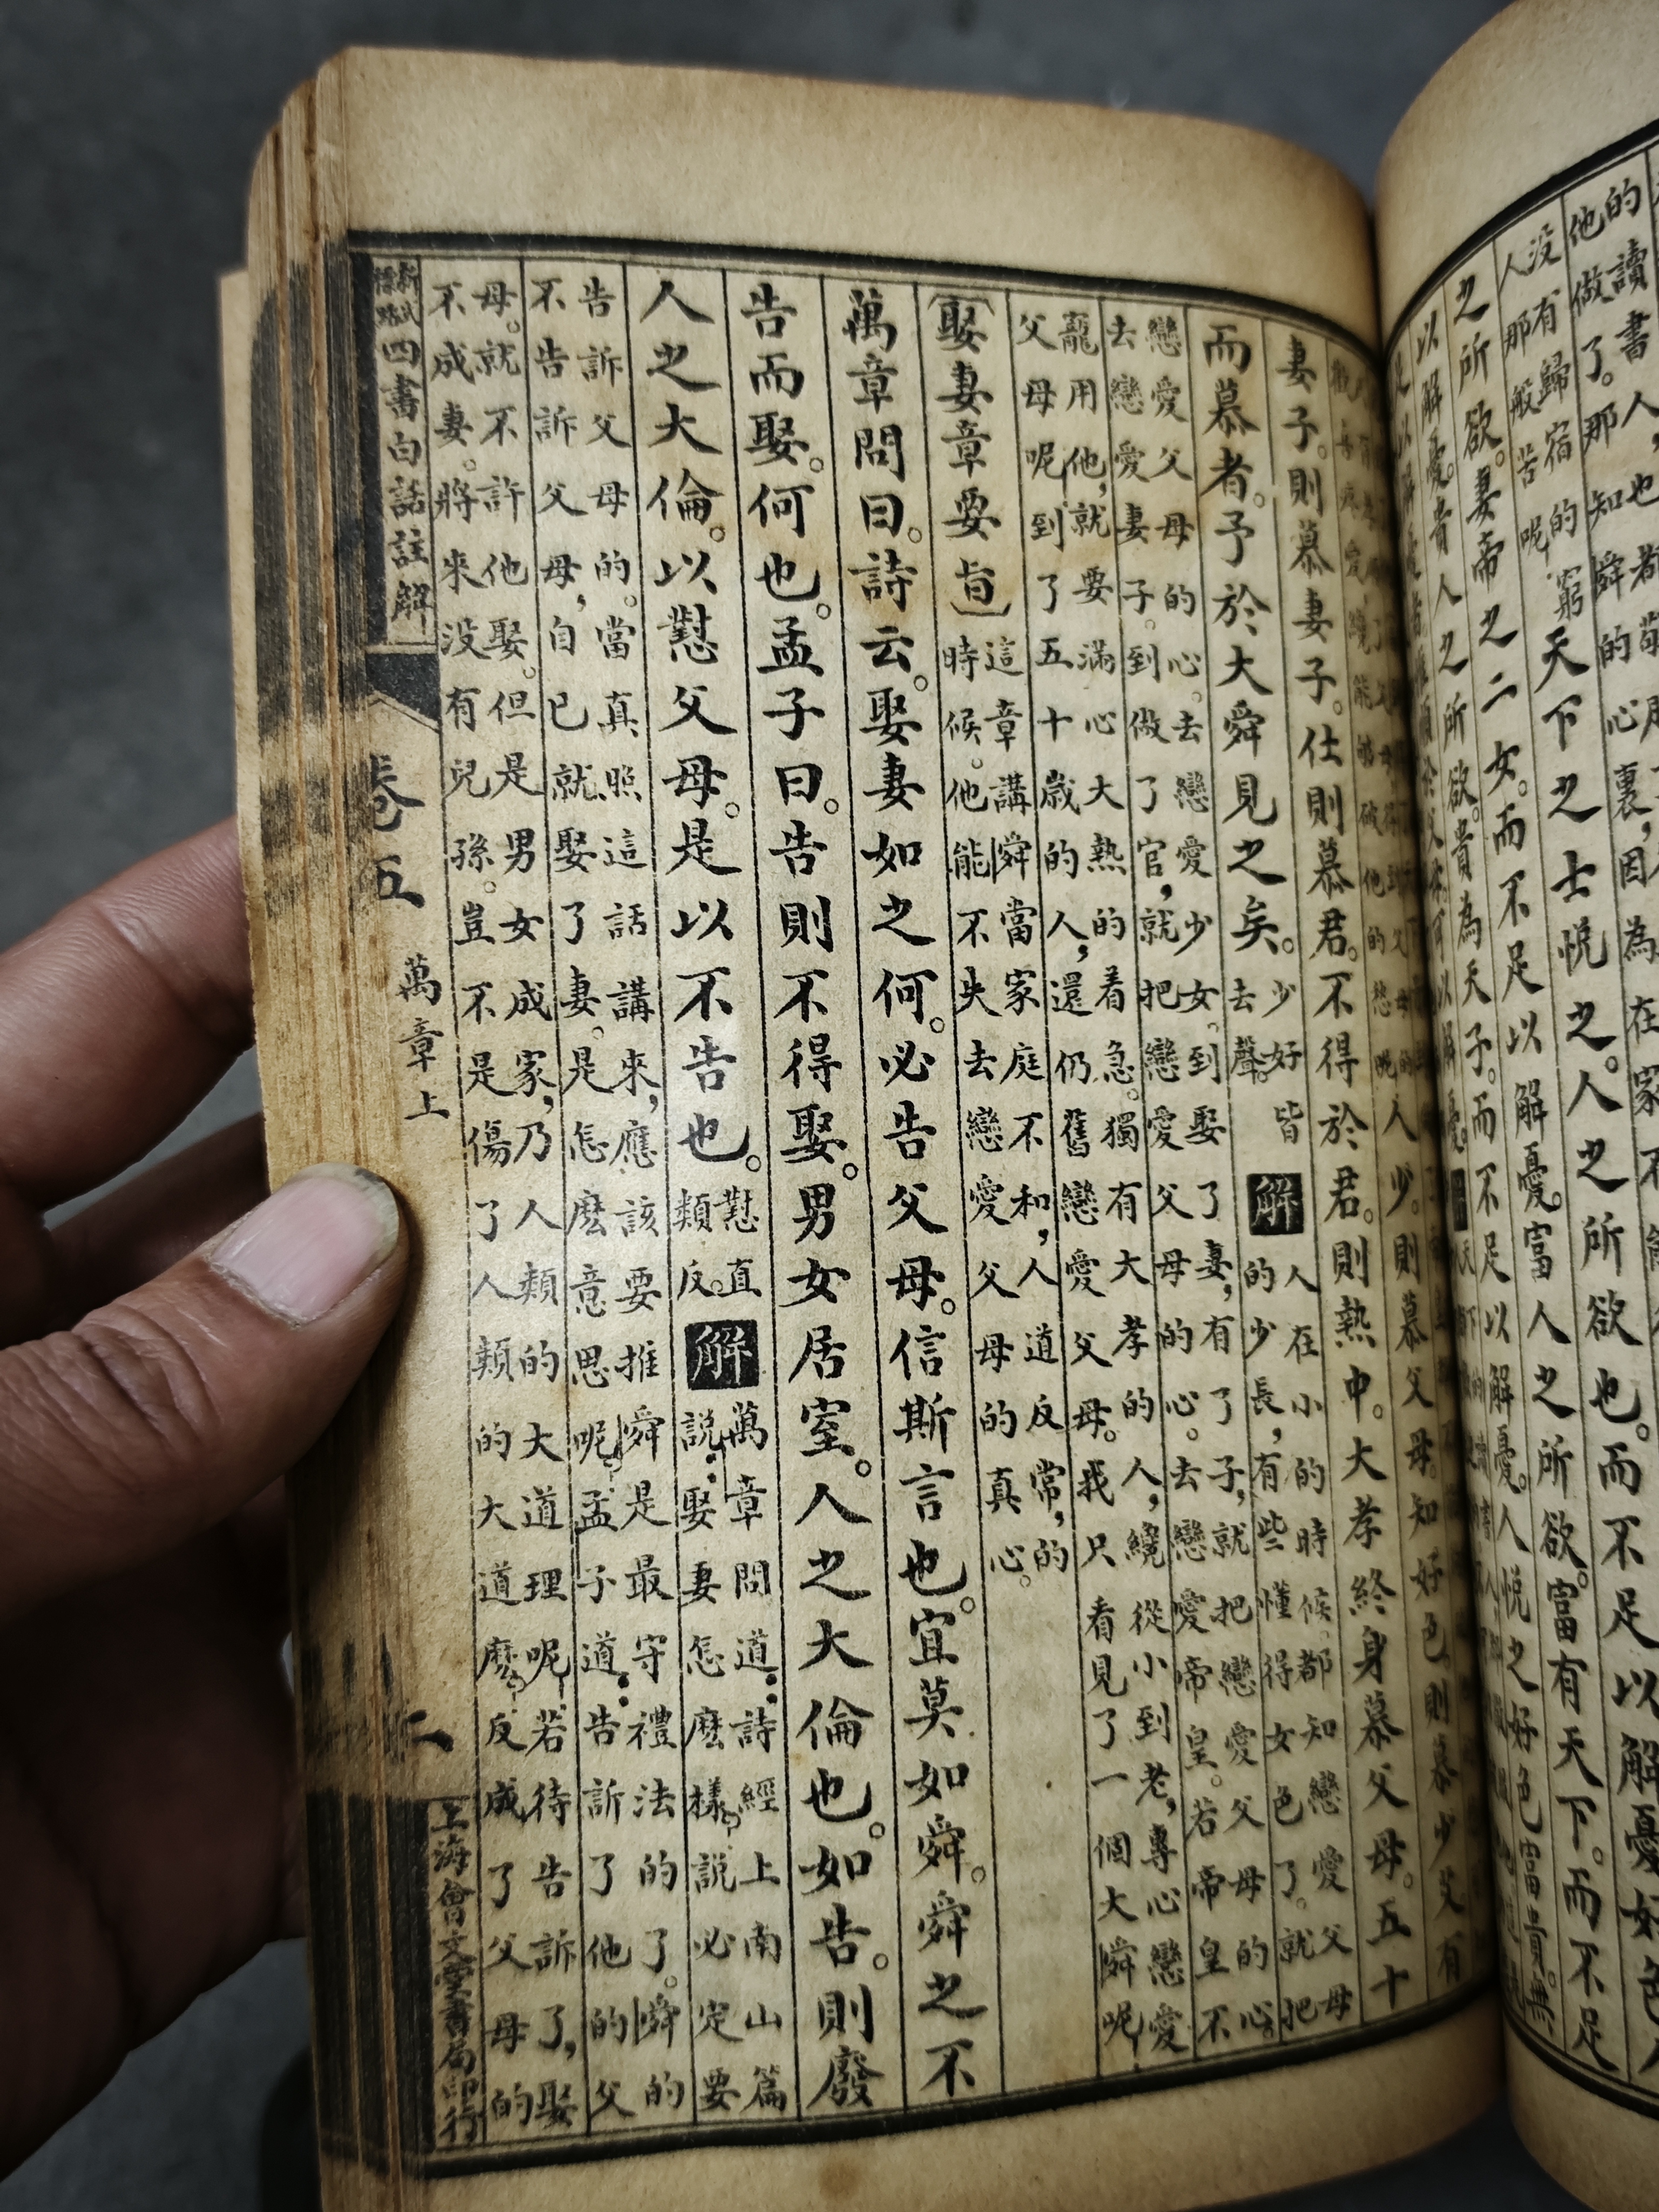 的讀書人,也都
他做了。那知舜的心裏,因為在家不
没有歸宿的
人那般苦呢
窮
天下之士悅之。人之所欲也。而不足以解憂好色
之所欲。妻帝之二女。而不足以解憂。富人之所欲。富有天下。而不足
以解憂。貴人之所欲。貴為天子。而不足以解憂。人悅之好色富貴。無
人少。則慕父母。知好色則慕少艾有
妻子。則慕妻子。仕則慕君。不得於君。則熱中。大孝終身慕父母。五十
而慕者。予於大舜見之矣。
少好皆
去聲。
解
人在小的時候都知戀愛父母
的少長,有些懂得女色了。就把
戀愛父母的心。去戀愛少女。到娶了妻,有了子,就把戀愛父母的心。
去戀愛妻子。到做了官,就把戀愛父母的心。去戀愛帝皇。若帝皇不
寵用他,就要滿心大熱的着急。獨有大孝的人,纔從小到老,專心戀愛
父母呢到了五十歲的人,還仍舊戀愛父母。我只看見了一個大舜呢
(娶妻章要旨)
這章講舜當家庭不和,人道反常,的
時候。他能不失去戀愛父母的真心。
萬章問曰。詩云。娶妻如之何。必告父母。信斯言也。宜莫如舜。舜之不
告而娶。何也。孟子曰。告則不得娶。男女居室。人之大倫也。如告。則廢
人之大倫。以懟父母。是以不告也。
懟直
類反。
解
萬章問道:詩經上南山篇
說:娶妻怎麽樣?說必定要
告訴父母的。當真照這話講來,應該要推舜是最守禮法的了。舜的
不告訴父母,自己就娶了妻。是怎麽意思呢?孟子道:告訴了他的父
母。就不許他娶。但是男女成家,乃人類的大道理呢!若待告訴了,娶
不成妻。將來没有兒孫。豈不是傷了人類的大道麽?反成了父母的
新式標點四書白話註解
卷五
萬章上
二
上海會文堂書局印行